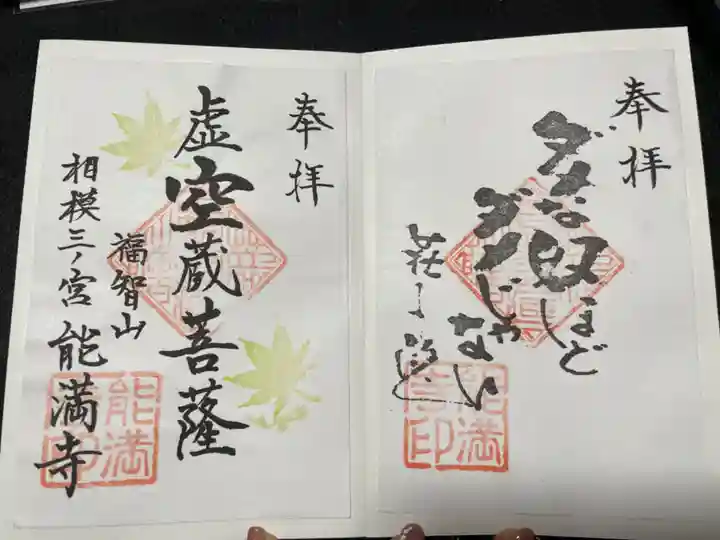 奉拝
ダメな奴ほど
ダメじゃない
奉拝
虚空蔵菩薩
福智山
相模三ノ宮能満寺
能満
寺印
能満
寺印